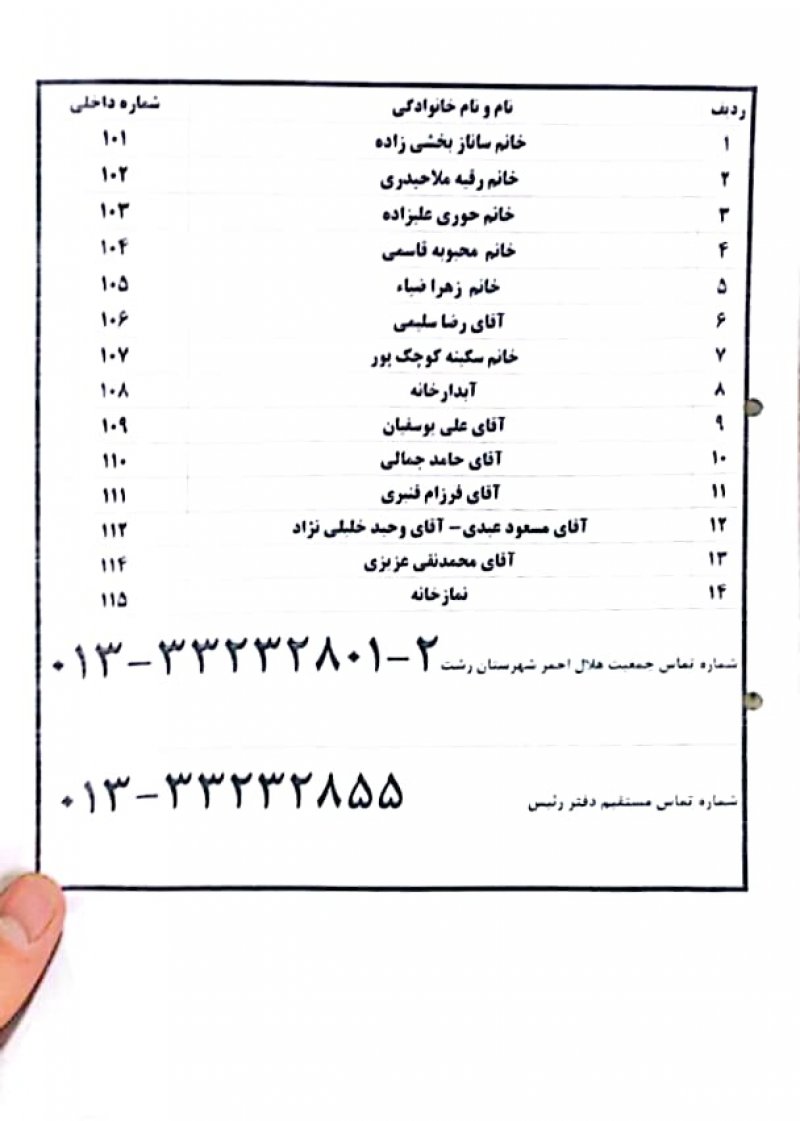 ردیف نام و نام خانوادگی شماره داخلی
۱ خانم ساناز بخشی زاده ۱۰۱
۲ خانم رقیه ملاحیدری ۱۰۲
۳ خانم حوری علیزاده ۱۰۳
۴ خانم محبوبه قاسمی ۱۰۴
۵ خانم زهرا ضیاء ۱۰۵
۶ آقای رضا سلیمی ۱۰۶
۷ خانم سکینه کوچک پور ۱۰۷
۸ آبدارخانه ۱۰۸
۹ آقای علی یوسفیان ۱۰۹
۱۰ آقای حامد جمالی ۱۱۰
۱۱ آقای فرزام قنبری ۱۱۱
۱۲ آقای مسعود عبدی- آقای وحید خلیلی نژاد ۱۱۲
۱۳ آقای محمدتقی عزیزی ۱۱۴
۱۴ نمازخانه ۱۱۵
شماره تماس جمعیت هلال احمر شهرستان رشت ۰۱۳-۳۳۲۳۲۸۰۱-۲
شماره تماس مستقیم دفتر رئیس ۰۱۳-۳۳۲۳۲۸۵۵